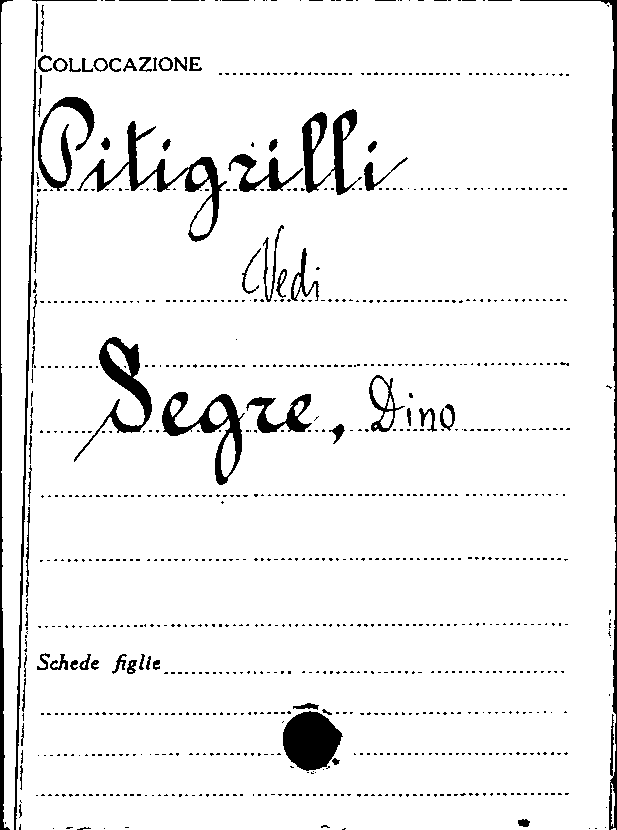 COLLOCAZIONE
Pitigrilli
Vedi
Segre, Dino
Schede figlie